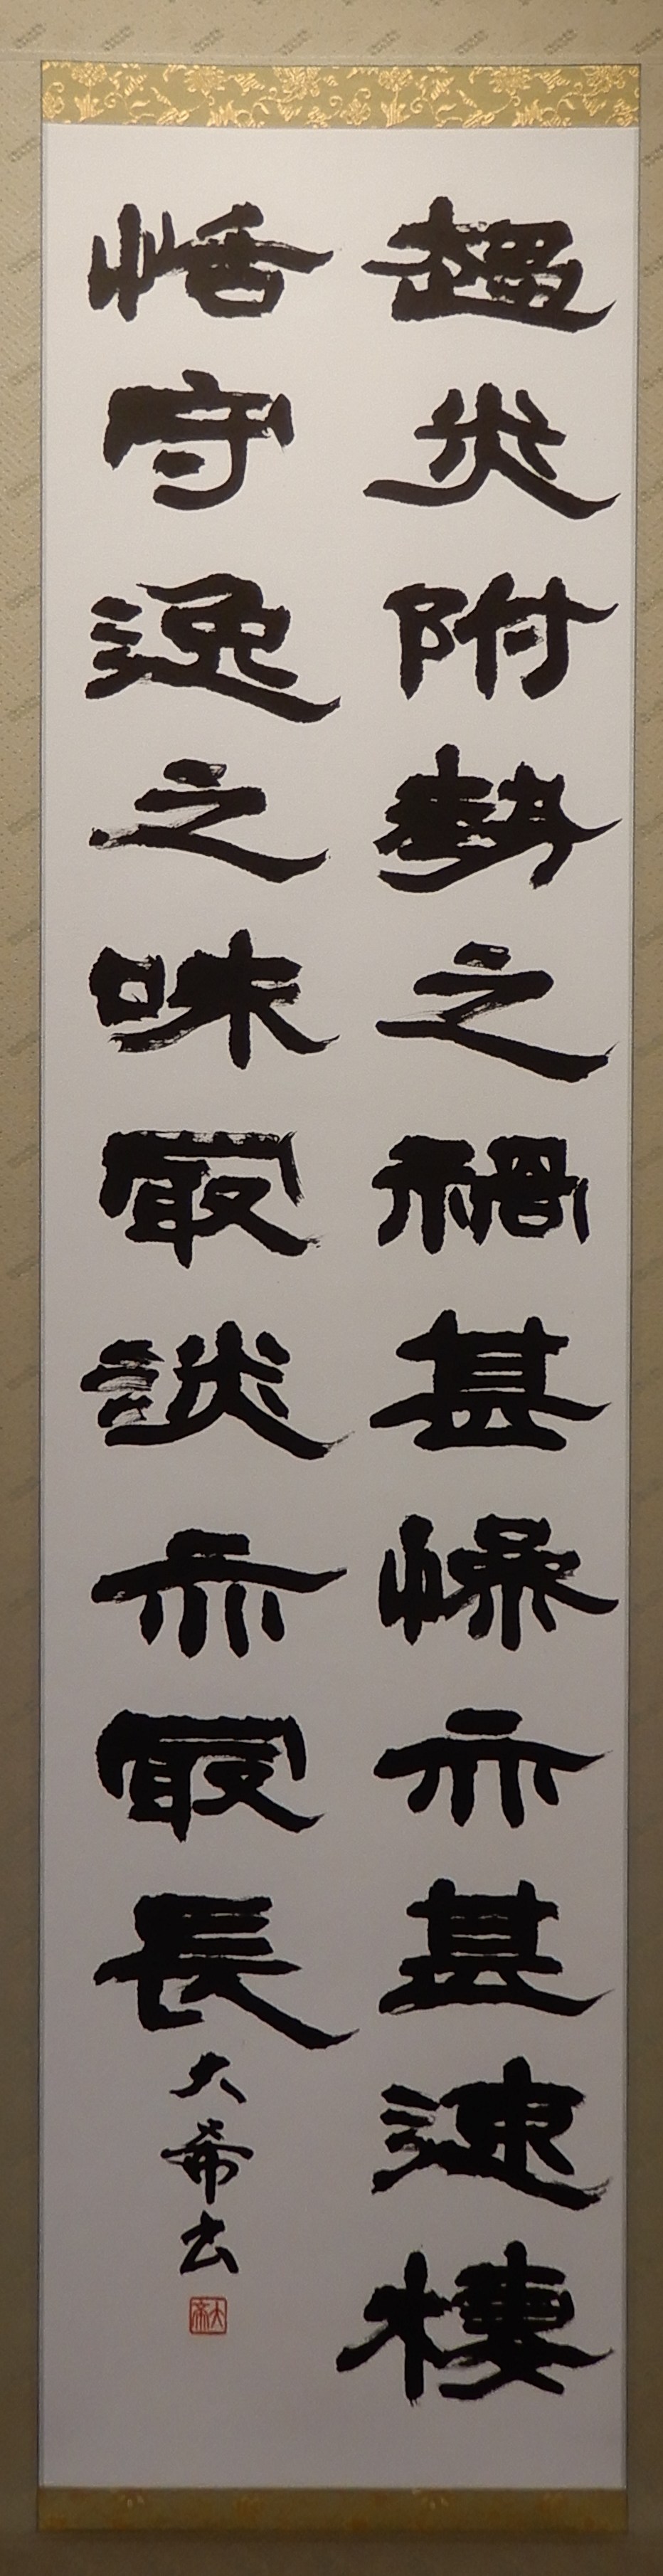 趨炎附勢之禍甚慘亦甚速棲
恬守逸之味最淡亦最長
大希
大希